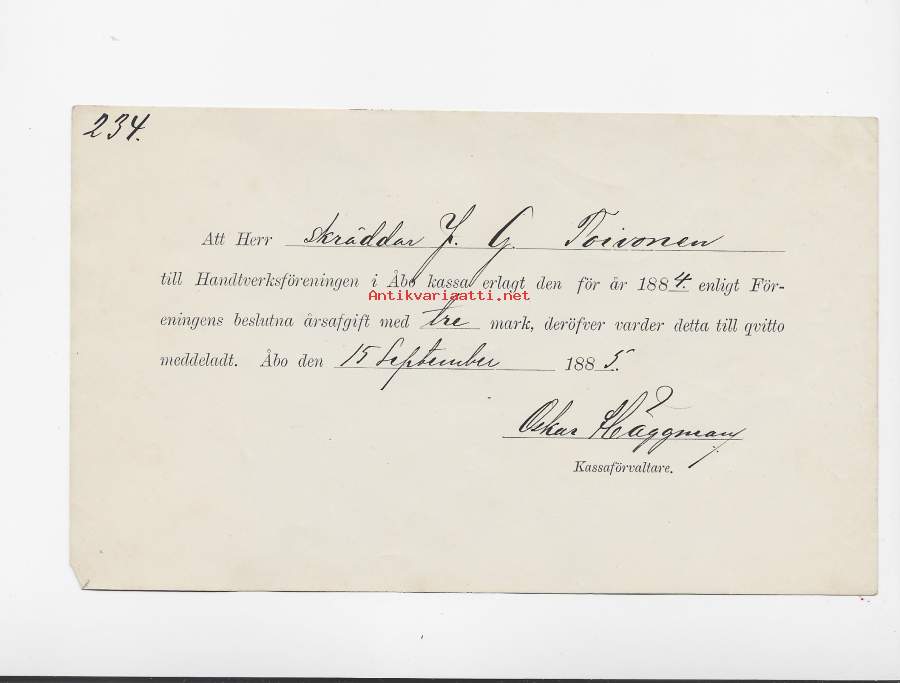 234.
Att Herr skräddar J. G. Toivonen
till Handtverksföreningen i Åbo kassa erlagt den för år 1884. enligt För-
Antikvariaatti.net
eningens beslutna årsafgift med tre mark, deröfver varder detta till qvitto
meddeladt. Åbo den 15 September 1885.
Oskar Häggman
Kassaförvaltare.